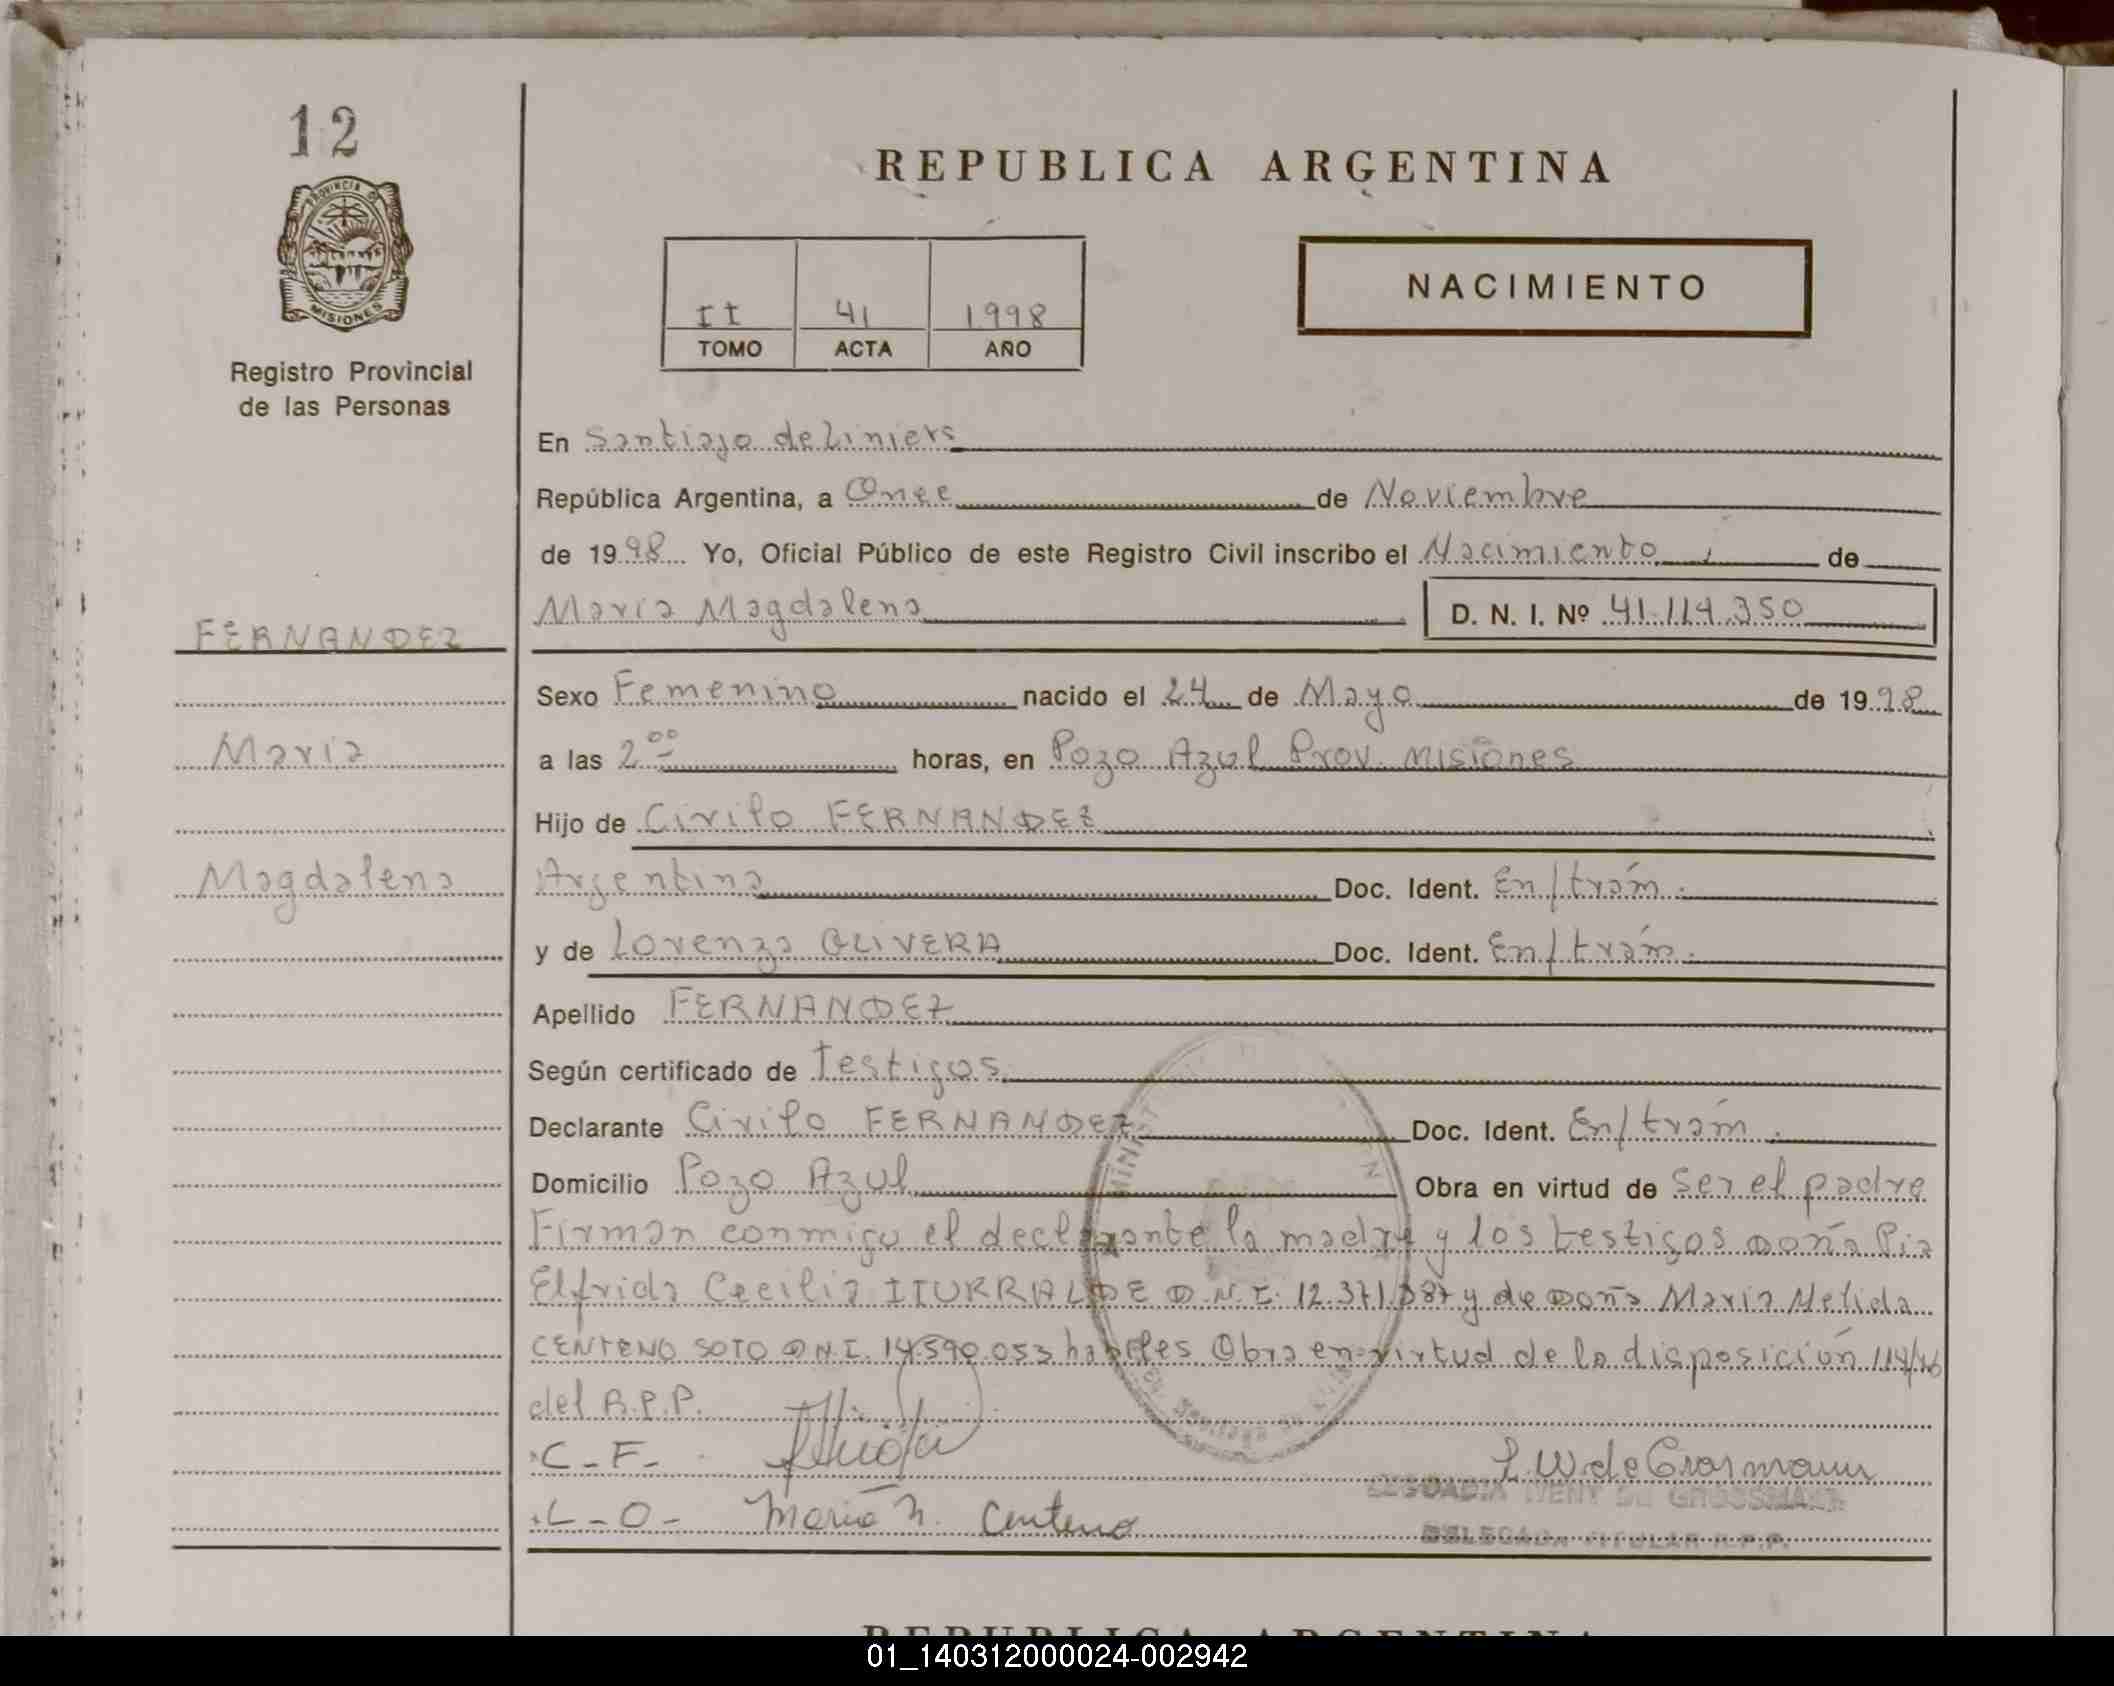 12
REPUBLICA ARGENTINA
PROVINCIA DE
MISIONES
Registro Provincial
de las Personas
NACIMIENTO
II 41 1998
TOMO ACTA AÑO
En Santiago de Liniers
República Argentina, a Once de Noviembre
de 19 98 Yo, Oficial Público de este Registro Civil inscribo el Nacimiento de
Maria Magdalena D. N. I. Nº 41.114.350
FERNANDEZ
Sexo Femenino nacido el 24 de Mayo de 19 98
Maria
a las 2 00 horas, en Pozo Azul Prov. Misiones
Hijo de Cirilo FERNANDEZ
Magdalena
Argentina Doc. Ident. En/trám.
y de Lorenza OLIVERA Doc. Ident. En/trám.
Apellido FERNANDEZ
Según certificado de Testigos
Declarante Cirilo FERNANDEZ Doc. Ident. En/trám.
Domicilio Pozo Azul Obra en virtud de ser el padre
Firman conmigo el declarante la madre y los testigos Doña Pia
Elfrida Cecilia ITURRALDE D.N.I. y de Doña Maria Nelida
CENTENO SOTO D.N.I. 14.590.053 habiles Obra en virtud de la disposición
del R.P.P.
C-F-
L W de Grosmann
LEOCADIA WENY DE GROSSMANN
L-O- Maria N. Centeno
DELEGADA TITULAR R.P.P.
REPUBLICA ARGENTINA
01_140312000024-002942